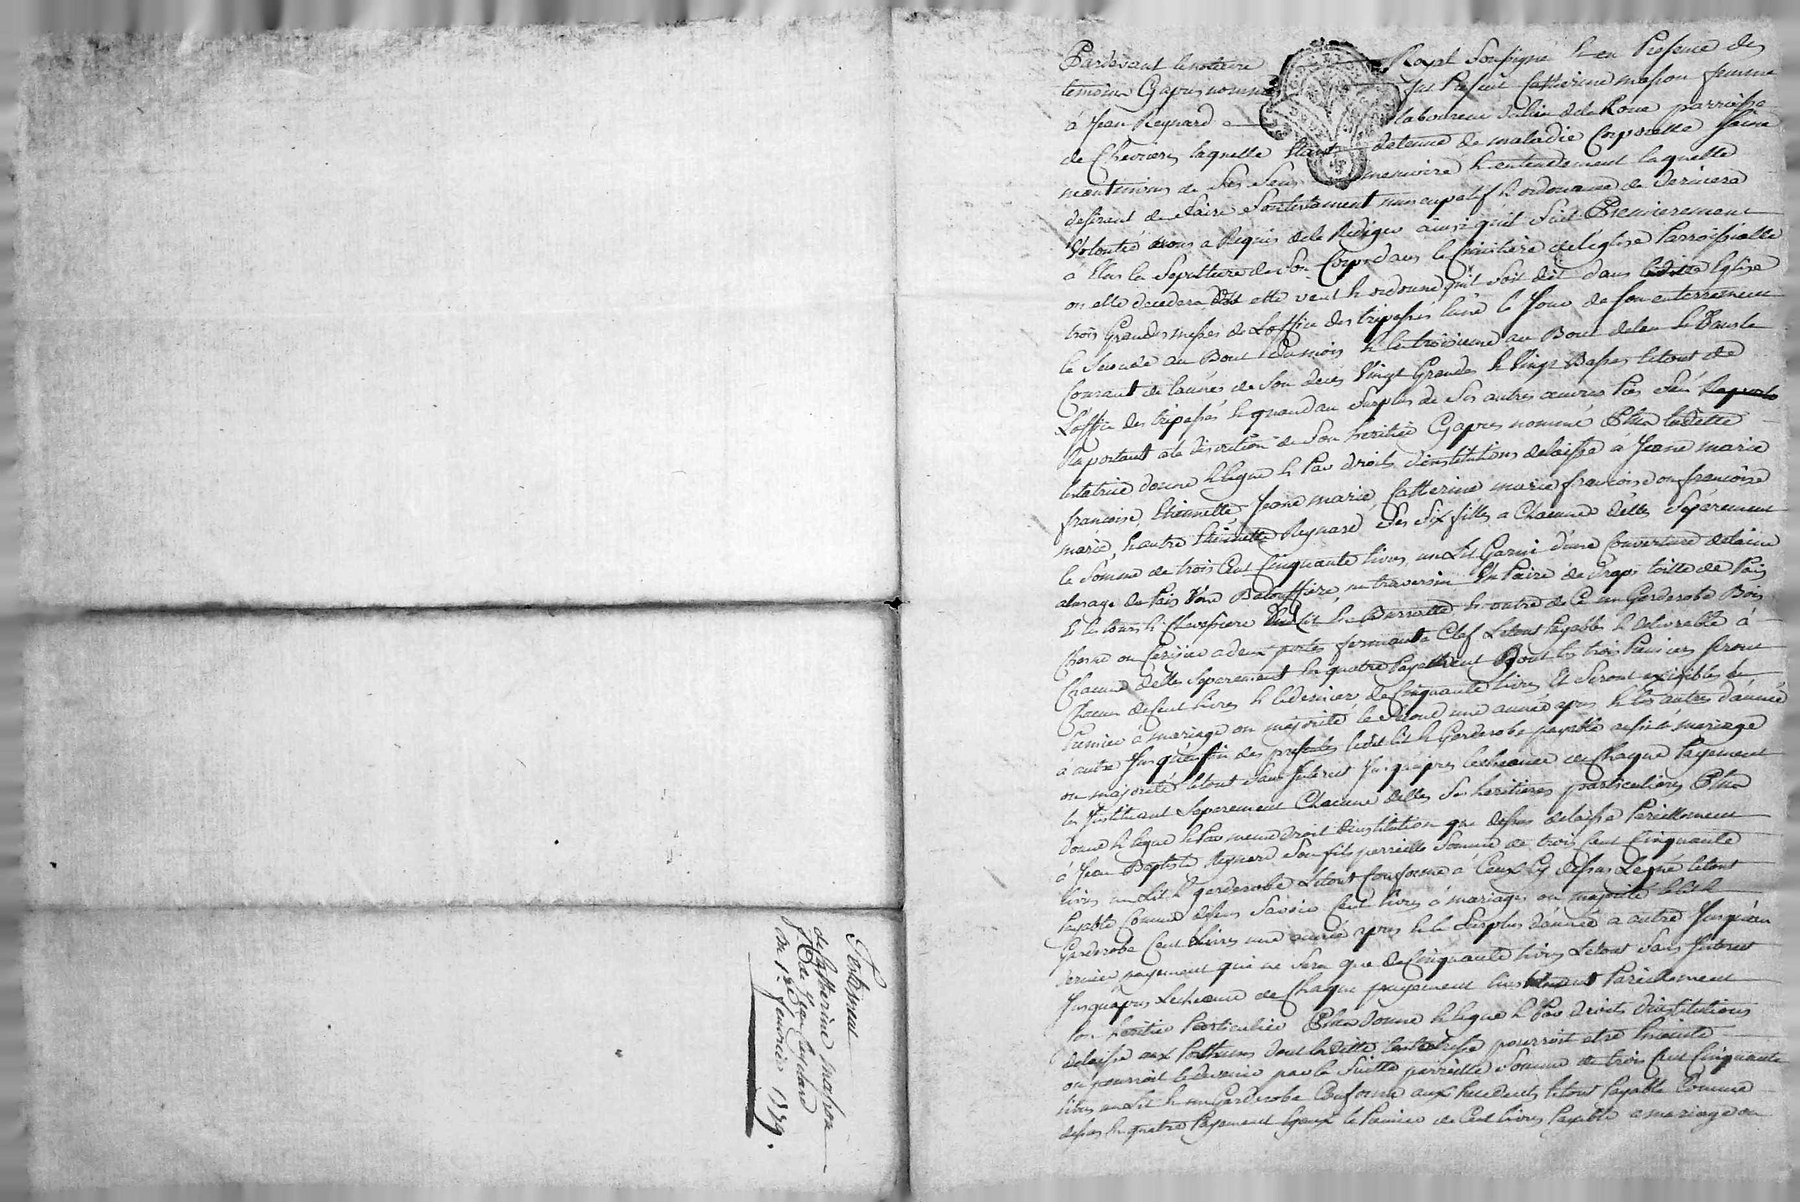 Testament
de Catherine masson
f.e de Jean Reynard
du 12e Janvier 1779.
Pardevant le notaire Royal Soussigné & en Presence des
temoins Cy apres nommés fut Presente Catherine masson femme
à Jean Reynard laboureur du lieu de la Roue parroisse
de Chevrieres laquelle Etant detenue de maladie Corporelle Saine
neantmoins de Ses Sens memoire & entendement laquelle
desirant de faire Son testament nuncupatif & ordonnance de derniere
Volonté nous a Requis de le Rediger ainsi quil Suit Premierement
a Elus la Sepulture de Son Corps dans le Cimitiere de l'église Parroissialle
ou elle decedera elle veut & ordonne quil soit dit dans ladite Eglise
trois Grandes messes de Loffice des trepassés lune le Jour de Son enterrement
la Seconde au Bout du mois & la troisieme au Bout de lan & dans le
Courant de lannée de Son deces Vingt Grandes & Vingt Basses le tout de
Loffice des trepassés & quand au Surplus de Ses autres œuvres Pies
Raportant a la discretion de Son heritier Cy apres nommé Plus ladite
testatrice donne & legue & Par droit d'institution delaisse à Jeane marie
francoise, Etiennette Jeane marie Catherine marie francoise ou francoise
marie, & autre Etiennette Reynard Ses Six filles a Chacune d'elles Séparement
la Somme de trois Cent Cinquante livres un Lit Garni d'une Couverture de laine
du Païs Une Balouffiere un traversin Un Paire de draps toille de Païs
& le tours & Chevessiere & outre de Ce un Garderobe Bois
Chesne ou Cerisier a deux portes fermant a Clef Le tout Payable & delivrable à
Chacune d'elles Separement En quatre Payement Dont les trois Premiers Seront
Chacun de Cent livres & le dernier de Cinquante livres Et Seront exigibles le
Premier à mariage ou majorité le Second une année apres & les autres d'année
à autre Jusquà fin des presentes ledit Lit & Garderobe payable aussi à mariage
ou majorité le tout Sans Interest Jusquapres lecheance de Chaque Payement
les Instituant Separement Chacune delles Ses heritieres particulieres Plus
donne & legue & Par meme droit d'institution que dessus delaisse Pareillement
à Jean Baptiste Reynard Son fils pareille Somme de trois Cent Cinquante
livres un Lit & garderobe Le tout Conforme à Ceux Cy dessus Legué le tout
Payable Comme dessus Savoir Cent livres à mariage ou majorité le Lit &
Garderobe Cent Livres une année apres & le Surplus d'année a autre Jusquau
dernier payement qui ne Sera que de Cinquante livres Le tout Sans Interest
Jusquapres Lecheance de Chaque payement Pareillement
Son heritier Particulier Plus donne & legue & Par droit d'institution
delaisse aux Posthumes dont ladite testatrice pourroit etre Enceinte
ou pourroit le devenir par la Suitte pareille Somme de trois Cent Cinquante
livres un Lit & un Garderobe Conforme aux precedents le tout Payable Comme
dessus En quatre Payement Egaux le Premier de Cent livres Payable a mariage ou